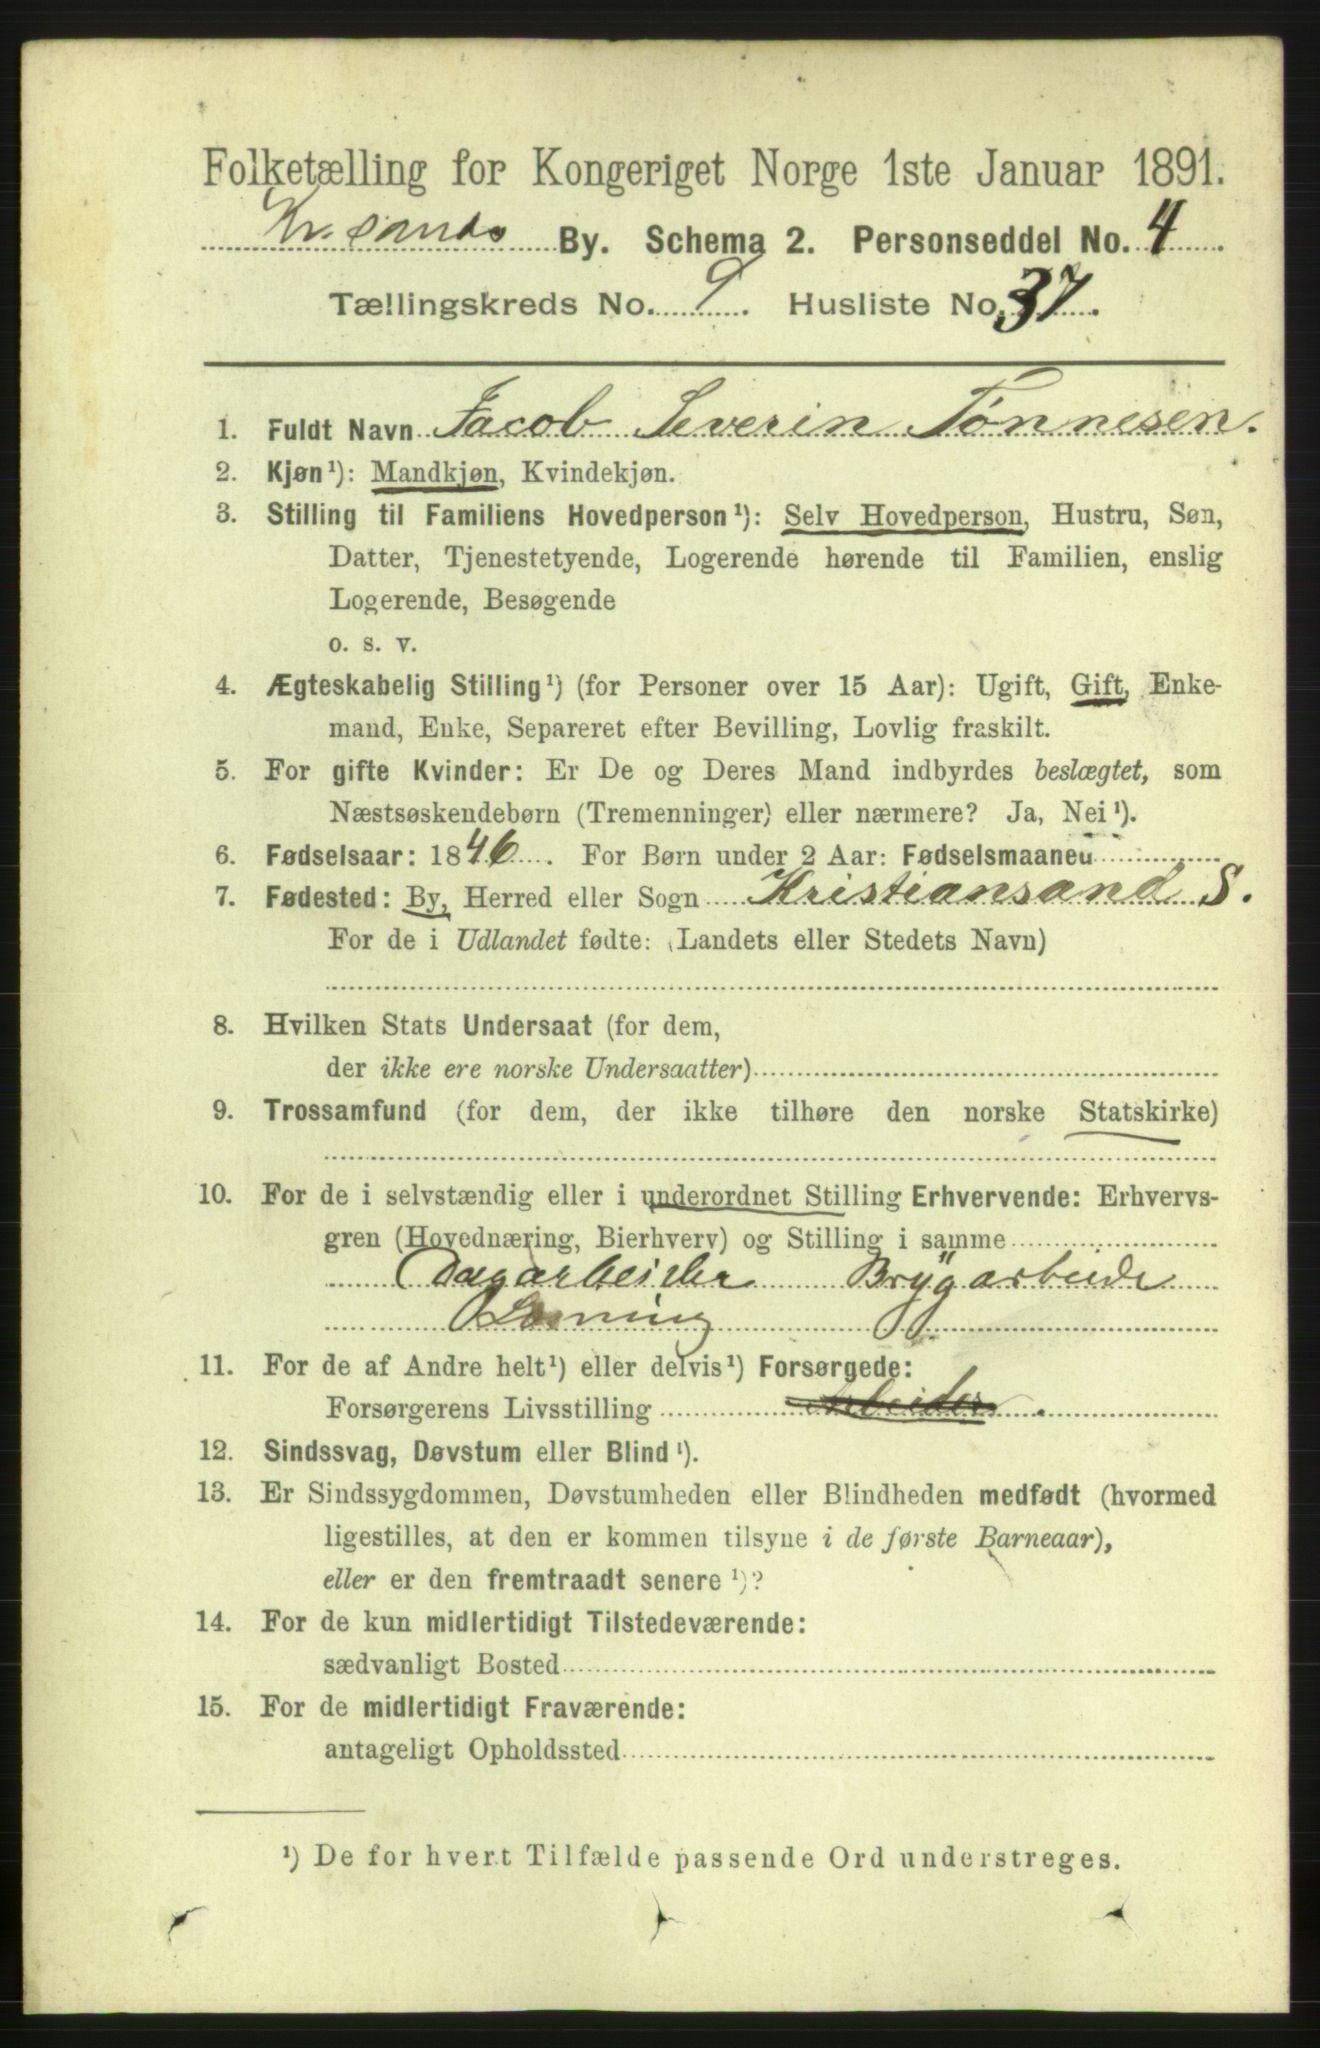 Folketælling for Kongeriget Norge 1ste Januar 1891.
Kr.sands By. Schema 2. Personseddel No. 4
Tællingskreds No. 9. Husliste No. 37.
1. Fuldt Navn Jacob Severin Tønnesen.
2. Kjøn¹): Mandkjøn, Kvindekjøn.
3. Stilling til Familiens Hovedperson¹): Selv Hovedperson, Hustru, Søn,
Datter, Tjenestetyende, Logerende hørende til Familien, enslig
Logerende, Besøgende
o. s. v.
4. Ægteskabelig Stilling¹) (for Personer over 15 Aar): Ugift, Gift, Enke-
mand, Enke, Separeret efter Bevilling, Lovlig fraskilt.
5. For gifte Kvinder: Er De og Deres Mand indbyrdes beslægtet, som
Næstsøskendebørn (Tremenninger) eller nærmere? Ja, Nei¹).
6. Fødselsaar: 1846. For Børn under 2 Aar: Fødselsmaaned
7. Fødested: By, Herred eller Sogn Kristiansand S.
For de i Udlandet fødte: (Landets eller Stedets Navn)
8. Hvilken Stats Undersaat (for dem,
der ikke ere norske Undersaatter)
9. Trossamfund (for dem, der ikke tilhøre den norske Statskirke)
10. For de i selvstændig eller i underordnet Stilling Erhvervende: Erhvervs-
gren (Hovednæring, Bierhverv) og Stilling i samme
Dagarbeider Brygarbeide
Losning
11. For de af Andre helt¹) eller delvis¹) Forsørgede:
Forsørgerens Livsstilling Arbeider.
12. Sindssvag, Døvstum eller Blind¹).
13. Er Sindssygdommen, Døvstumheden eller Blindheden medfødt (hvormed
ligestilles, at den er kommen tilsyne i de første Barneaar),
eller er den fremtraadt senere¹)?
14. For de kun midlertidigt Tilstedeværende:
sædvanligt Bosted
15. For de midlertidigt Fraværende:
antageligt Opholdssted
¹) De for hvert Tilfælde passende Ord understreges.